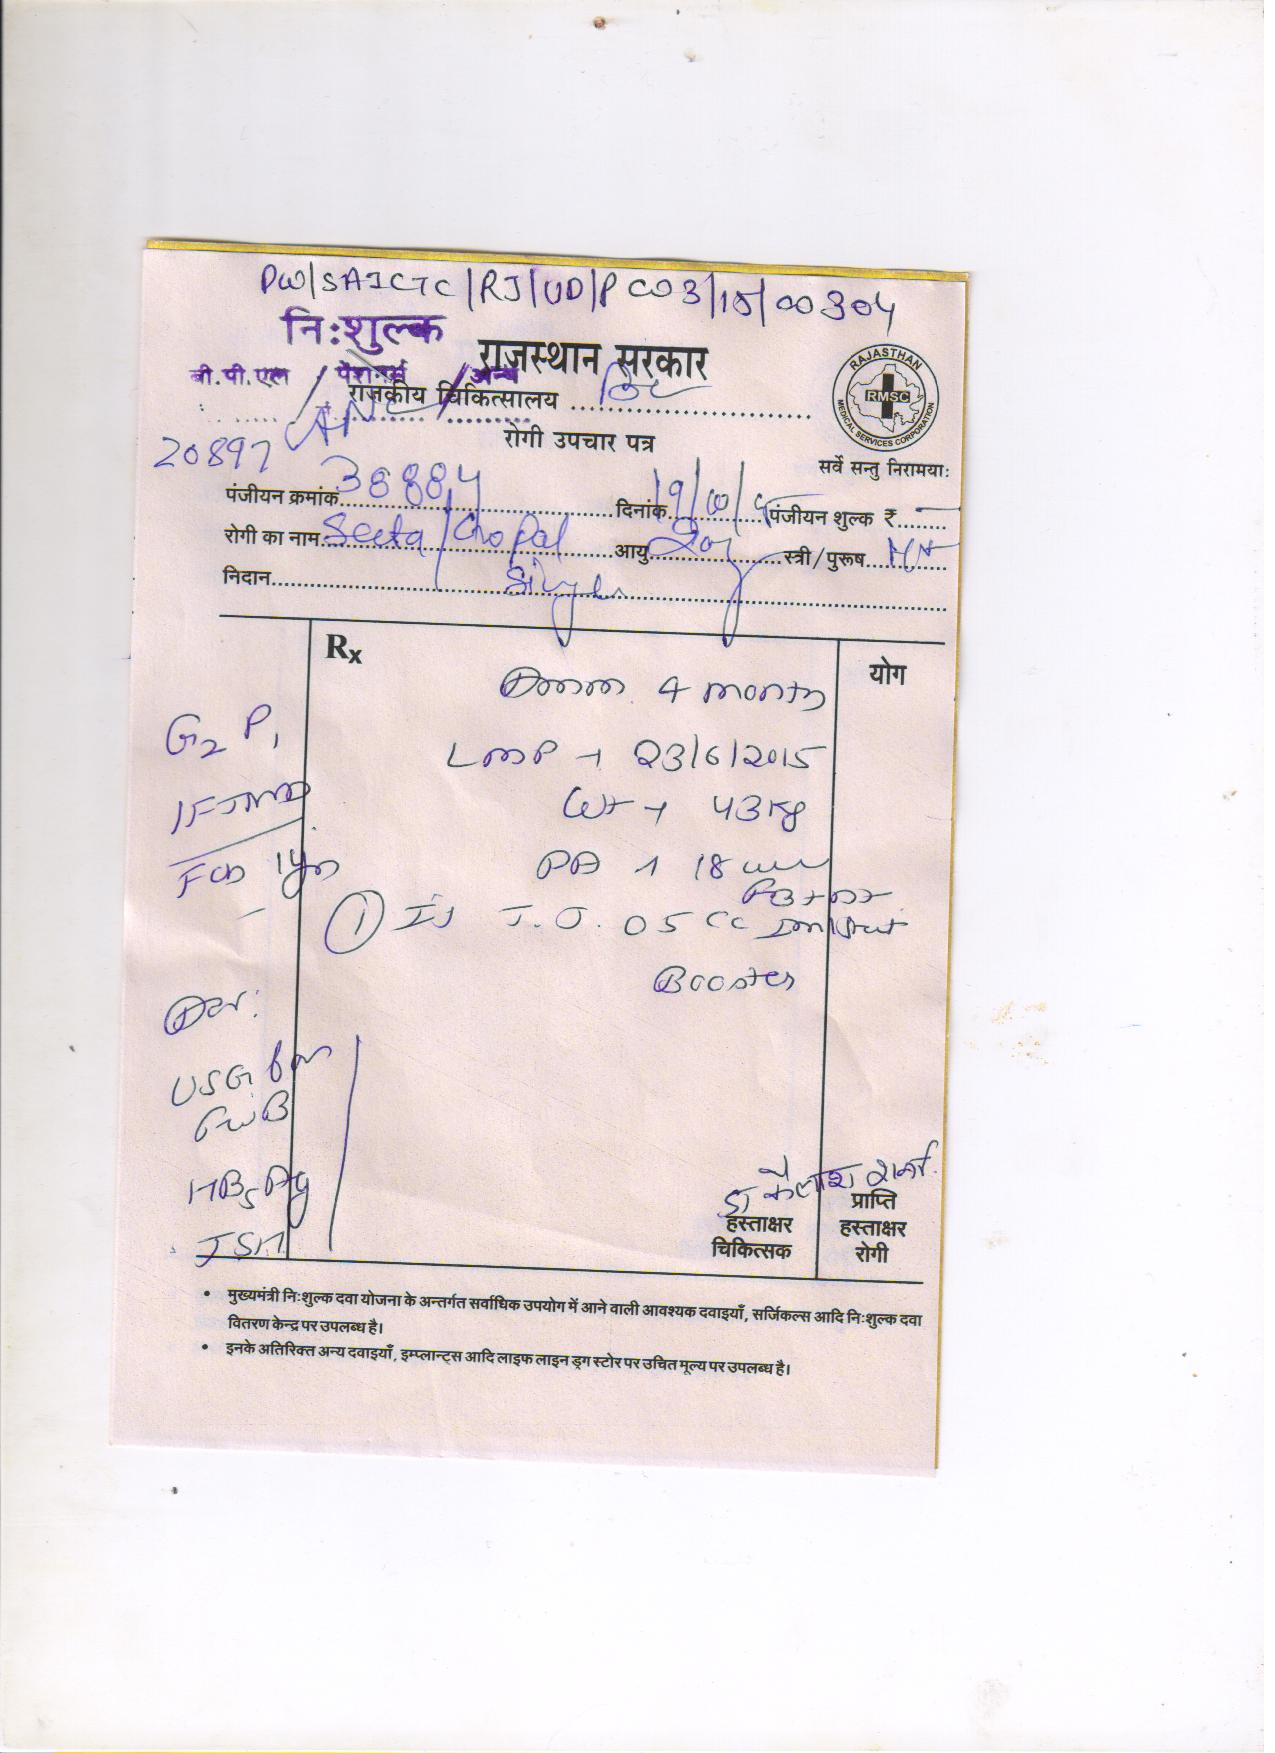 PW/SAICTC/RJ/UD/PC03/15/00304
नि:शुल्क
राजस्थान सरकार
बी.पी.एल / पेंशनर्स / अन्य
राजकीय चिकित्सालय
RAJASTHAN
RMSC
MEDICAL SERVICES CORPORATION
ANC
रोगी उपचार पत्र
20897
सर्वे सन्तु निरामयाः
पंजीयन क्रमांक 38884 दिनांक 19/10/ पंजीयन शुल्क ₹ -
रोगी का नाम Seeta/Gopal आयु 20y स्त्री/पुरूष
निदान
Rx
योग
4 month
G2 P1
LMP → 23/6/2015
1FTND
Wt → 43 kg
FCh 1yr
PA → 18
① Inj T.T. 0 5 CC
Booster
Adv:
USG for
FWB
HBsAg
TSH
डा कैलाश शर्मा
हस्ताक्षर
चिकित्सक
प्राप्ति
हस्ताक्षर
रोगी
• मुख्यमंत्री निःशुल्क दवा योजना के अन्तर्गत सर्वाधिक उपयोग में आने वाली आवश्यक दवाइयाँ, सर्जिकल्स आदि निःशुल्क दवा
वितरण केन्द्र पर उपलब्ध है।
• इनके अतिरिक्त अन्य दवाइयाँ, इम्प्लान्ट्स आदि लाइफ लाइन ड्रग स्टोर पर उचित मूल्य पर उपलब्ध है।